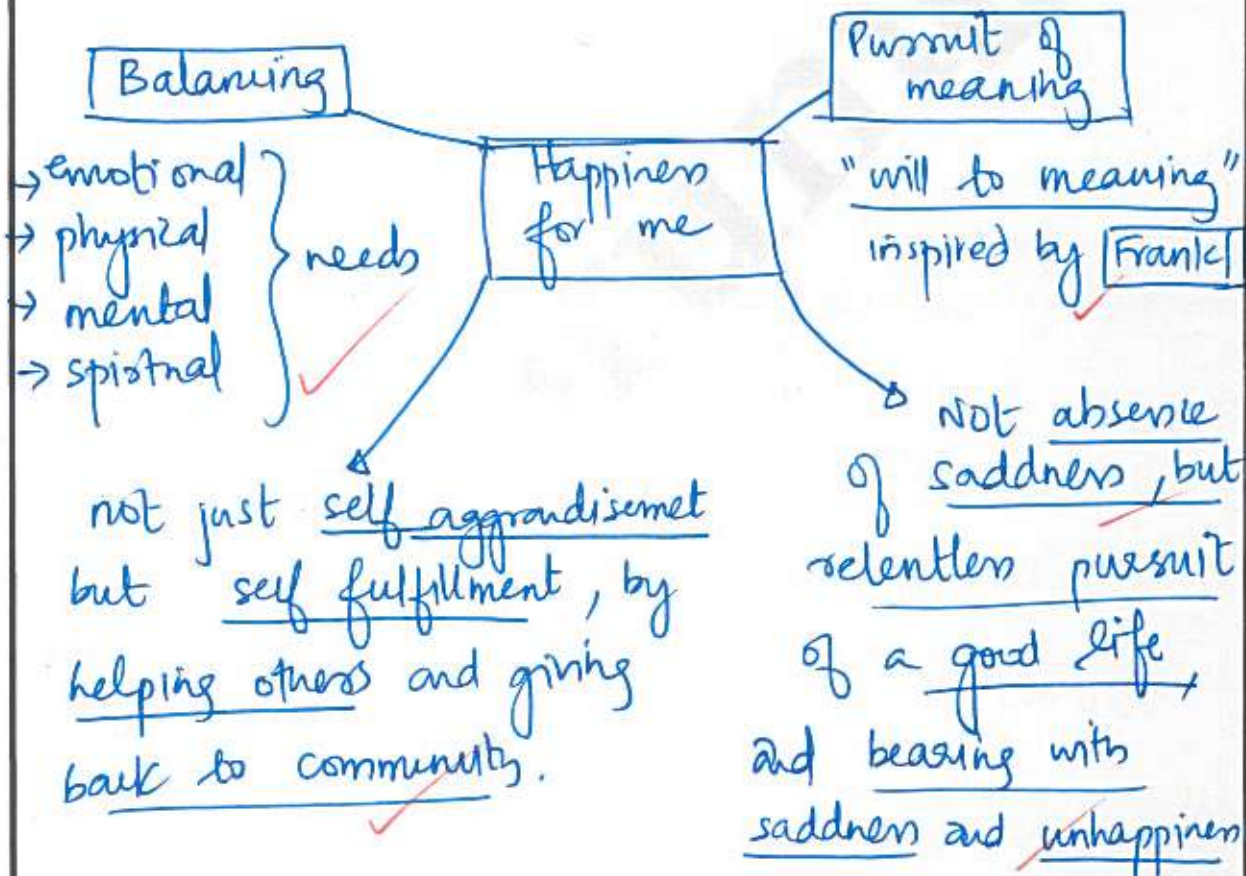 Balancing
→ emotional
→ physical
→ mental
→ spiritual
needs
Happiness
for me
Pursuit of
meaning
"will to meaning"
inspired by Frankl
not just self aggrandisemet
but self fulfillment, by
helping others and giving
back to community.
Not absence
of saddness, but
relentless pursuit
of a good life,
and bearing with
saddness and unhappiness